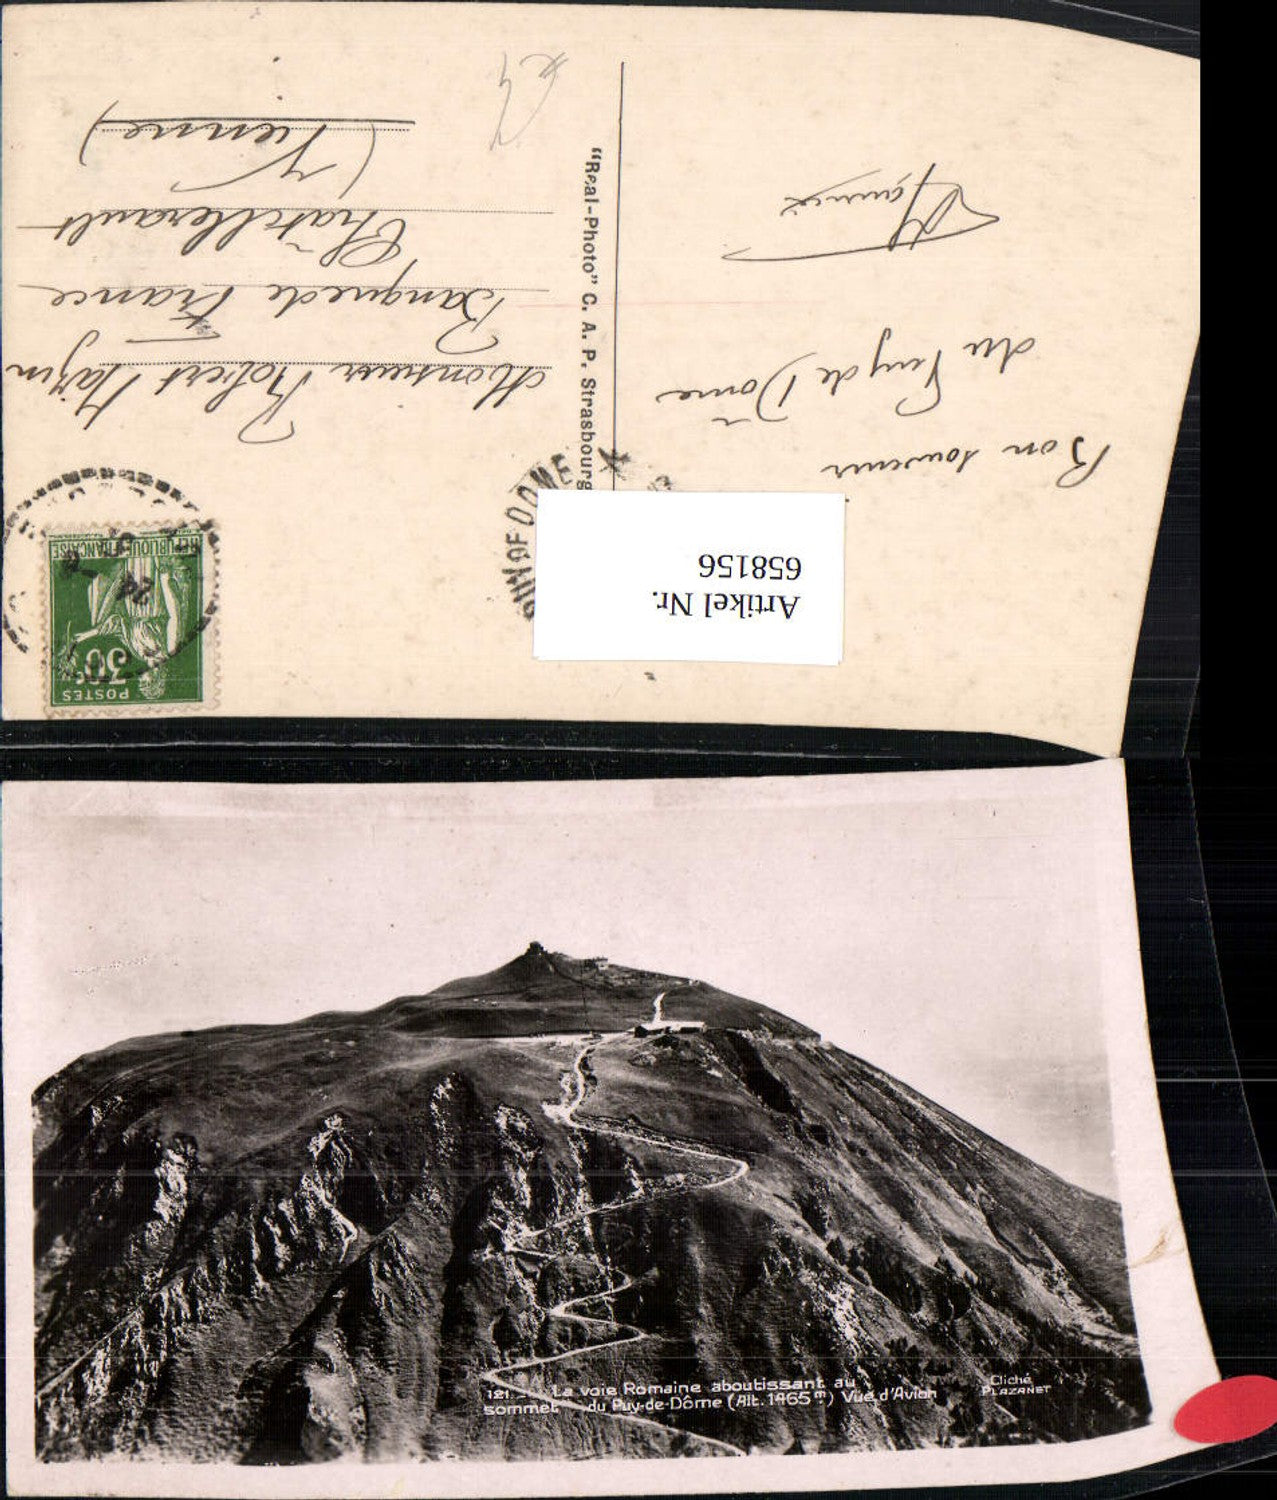 Bon souvenir
du Puy de Dôme
"Real-Photo" C. A. P. Strasbourg
Monsieur Robert
Banque de France
Châtellerault
(Vienne)
POSTES
30c
REPUBLIQUE FRANÇAISE
24
DE DOME
Artikel Nr.
658156
121. - La voie Romaine aboutissant au
sommet du Puy-de-Dôme (Alt. 1465m) Vue d'Avion
Cliché
PLAZANET